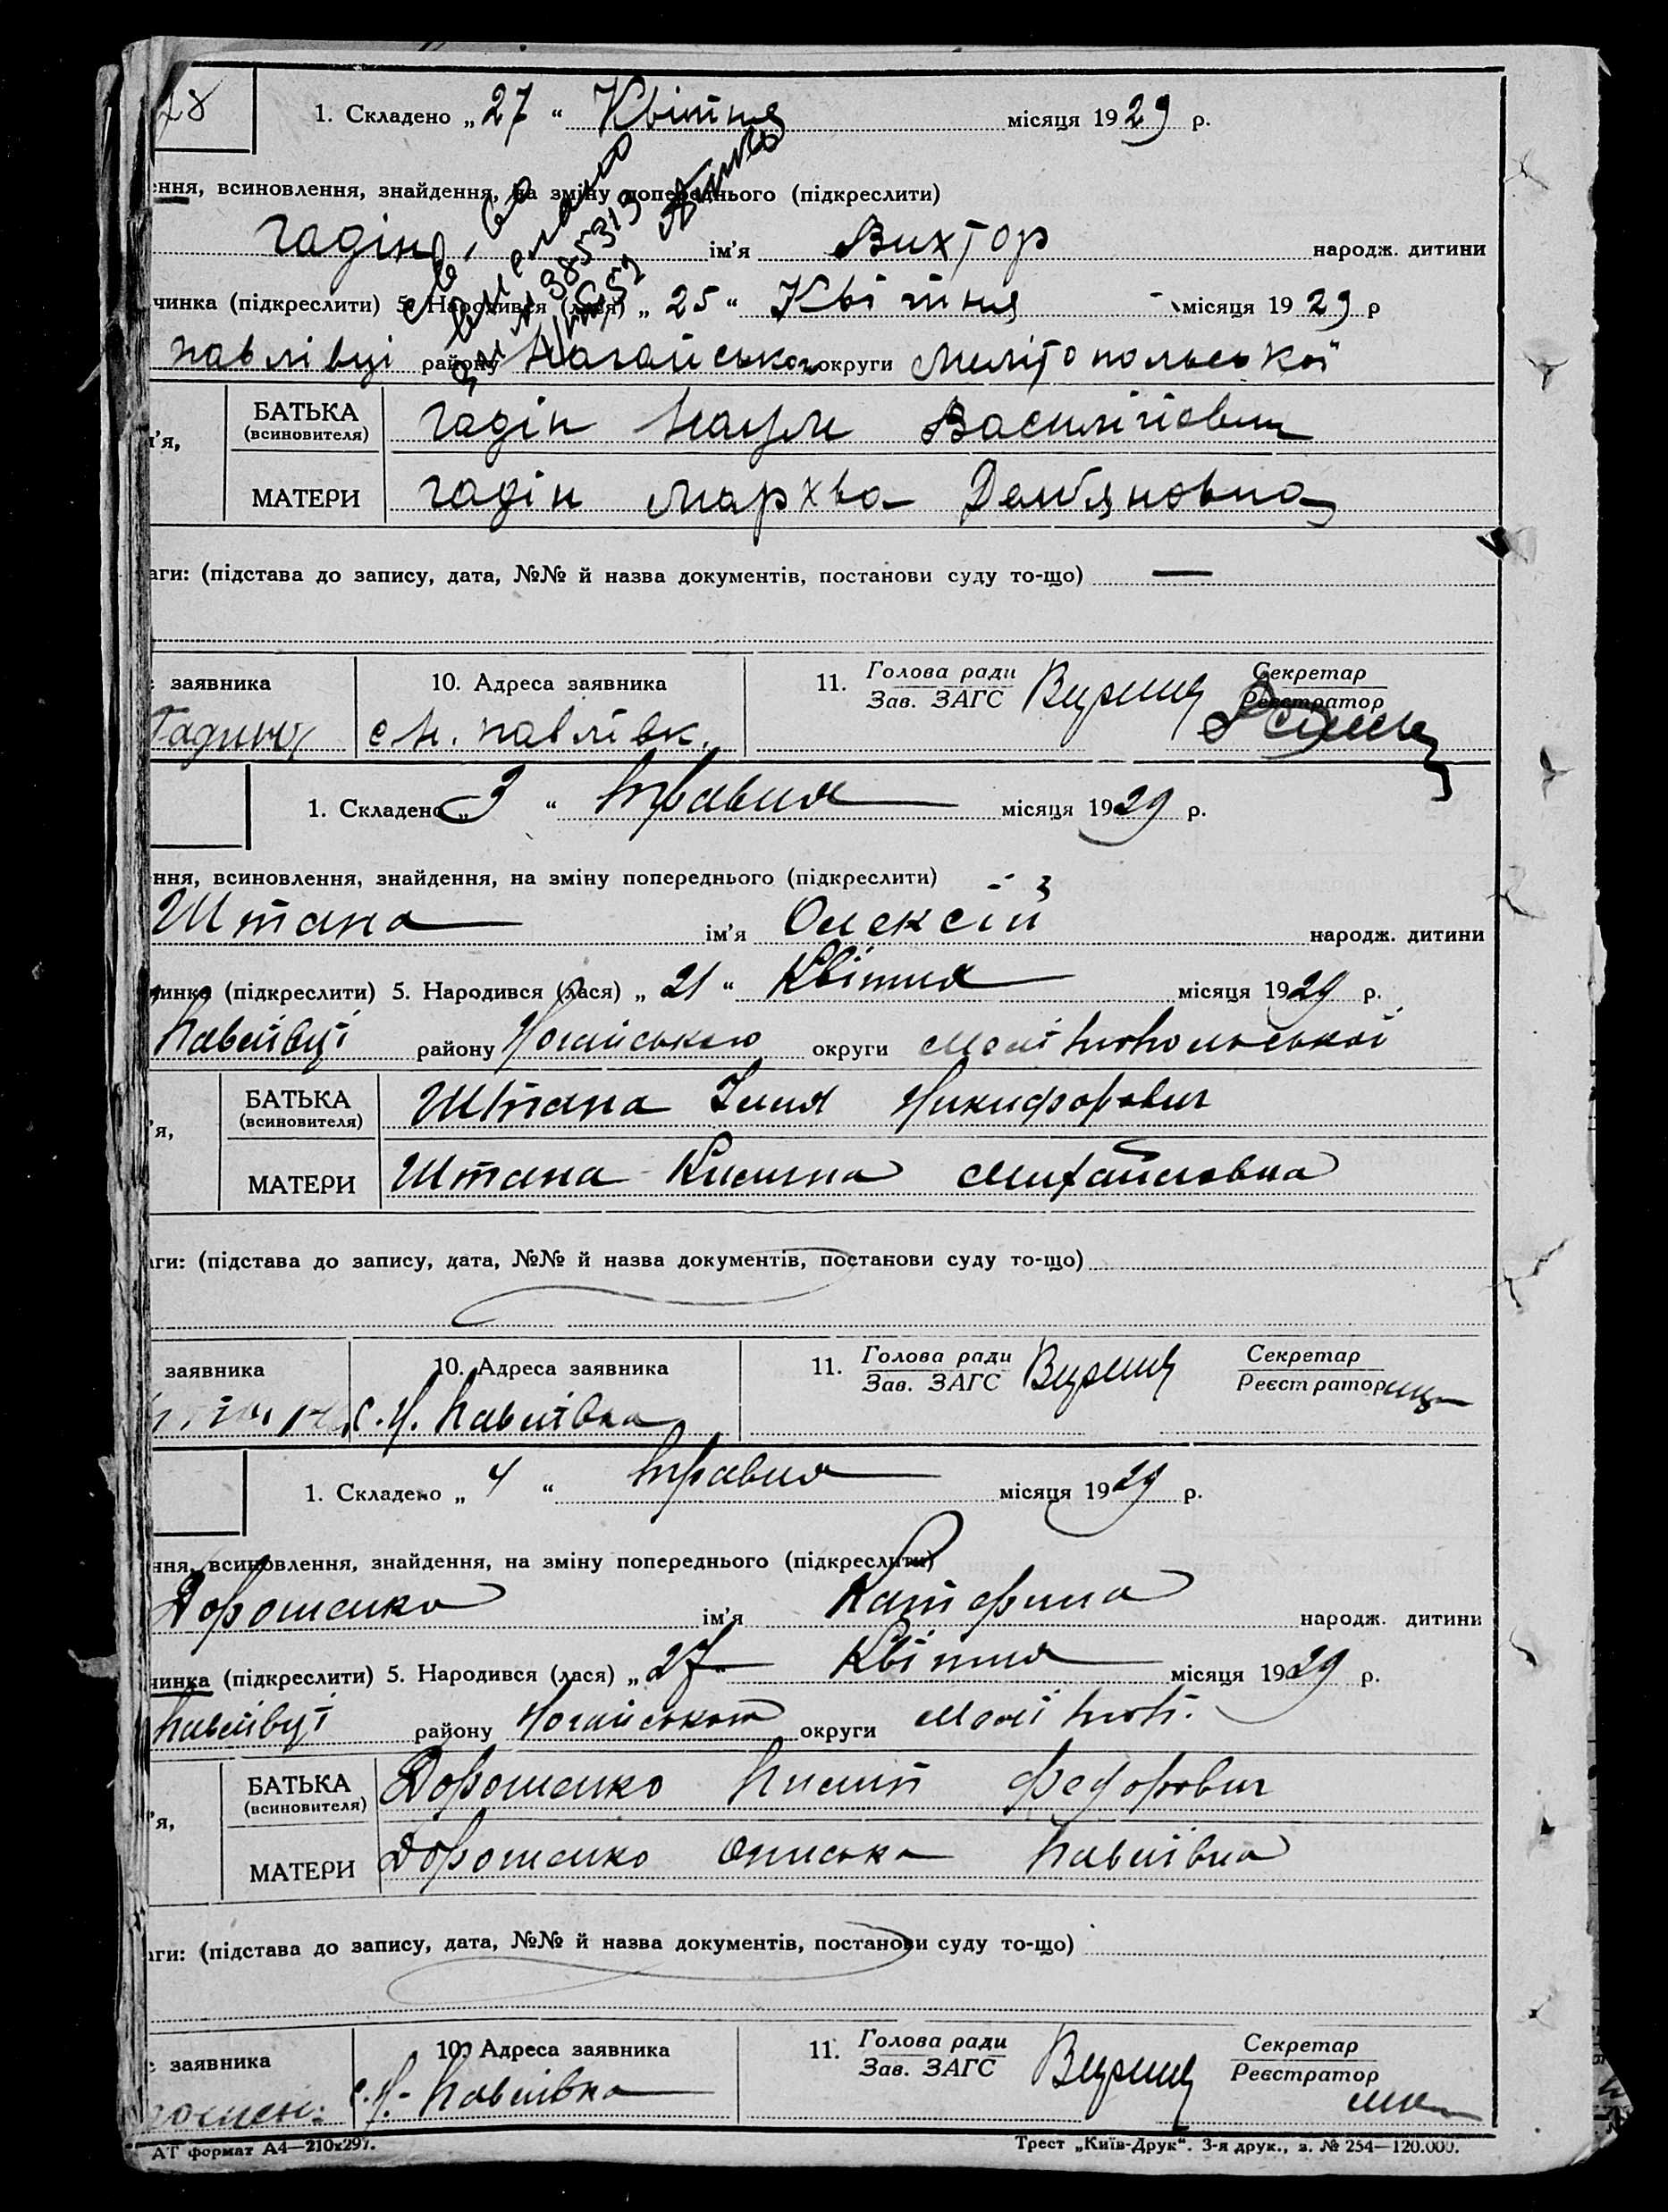 78
1. Складено „ 27 “ Квітня місяця 1929 р.
ення, всиновлення, знайдення, на зміну попереднього (підкреслити)
Гадін ім'я Вихтор народж. дитини
чинка (підкреслити) 5. Народився (лася) „ 25 “ Квітня місяця 1929 р
Павлівці району Нагайського округи Мелітопольської
БАТЬКА
(всиновителя)
Гадін Наум Василійович
'я,
МАТЕРИ Гадін Мархва Демьяновна
аги: (підстава до запису, дата, №№ й назва документів, постанови суду то-що) —
заявника 10. Адреса заявника 11. Голова ради Секретар
Зав. ЗАГС Реєстратор
с Н. Павлівк.
1. Складено „ 3 “ Травня місяця 1929 р.
ння, всиновлення, знайдення, на зміну попереднього (підкреслити)
Штана ім'я Олексій народж. дитини
чинка (підкреслити) 5. Народився (лася) „ 21 “ Квітня місяця 1929 р.
Павлівці району Ногайського округи Мелітопольської
БАТЬКА
(всиновителя)
Штана Ілля Никифорович
'я,
МАТЕРИ Штана Михайловна
аги: (підстава до запису, дата, №№ й назва документів, постанови суду то-що)
заявника 10. Адреса заявника 11. Голова ради Секретар
Зав. ЗАГС Реєстратор
с. Н. Павлівка
1. Складено „ 4 “ Травня місяця 1929 р.
ння, всиновлення, знайдення, на зміну попереднього (підкреслити)
Дорошенко ім'я Катерина народж. дитини
чинка (підкреслити) 5. Народився (лася) „ 27 “ Квітня місяця 1929 р.
Павлівці району Ногайського округи Меліт��п.
БАТЬКА
(всиновителя)
Дорошенко Федорович
'я,
МАТЕРИ Дорошенко Павлівна
аги: (підстава до запису, дата, №№ й назва документів, постанови суду то-що)
заявника 10. Адреса заявника 11. Голова ради Секретар
Зав. ЗАГС Реєстратор
рошен. с. Н. Павлівка
АТ формат А4—210х297. Трест „Київ-Друк“. 3-я друк., з. № 254—120.000.